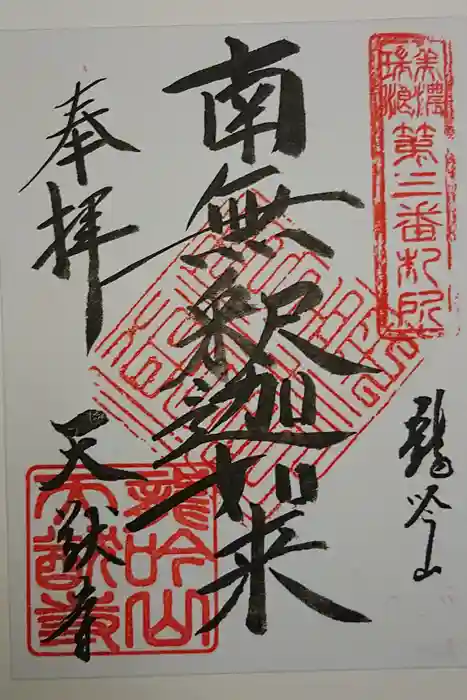 美濃
瑞浪
第三番札所
龍吟山
南無釈迦如来
奉拝
天猷寺
龍吟山
天猷寺